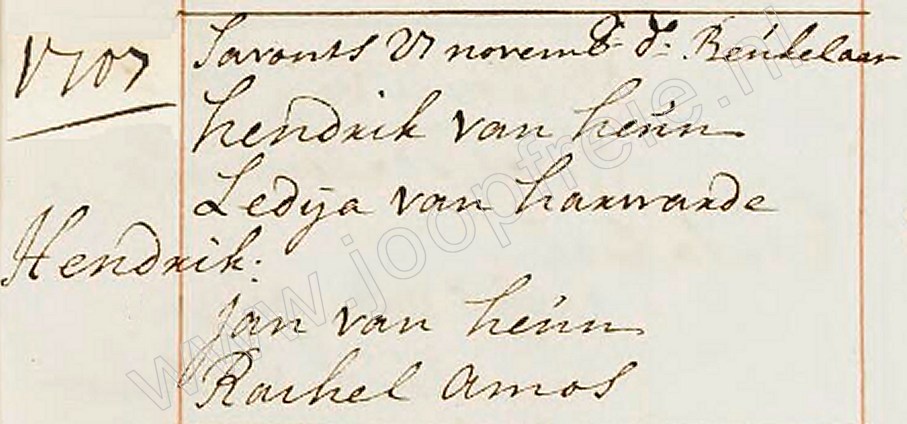 1707
Savonts 27 novemb: ds: Beukelaar
hendrik van heun
Ledija van harwarde
Hendrik:
jan van heun
Rachel Amos
www.joopfreie.nl